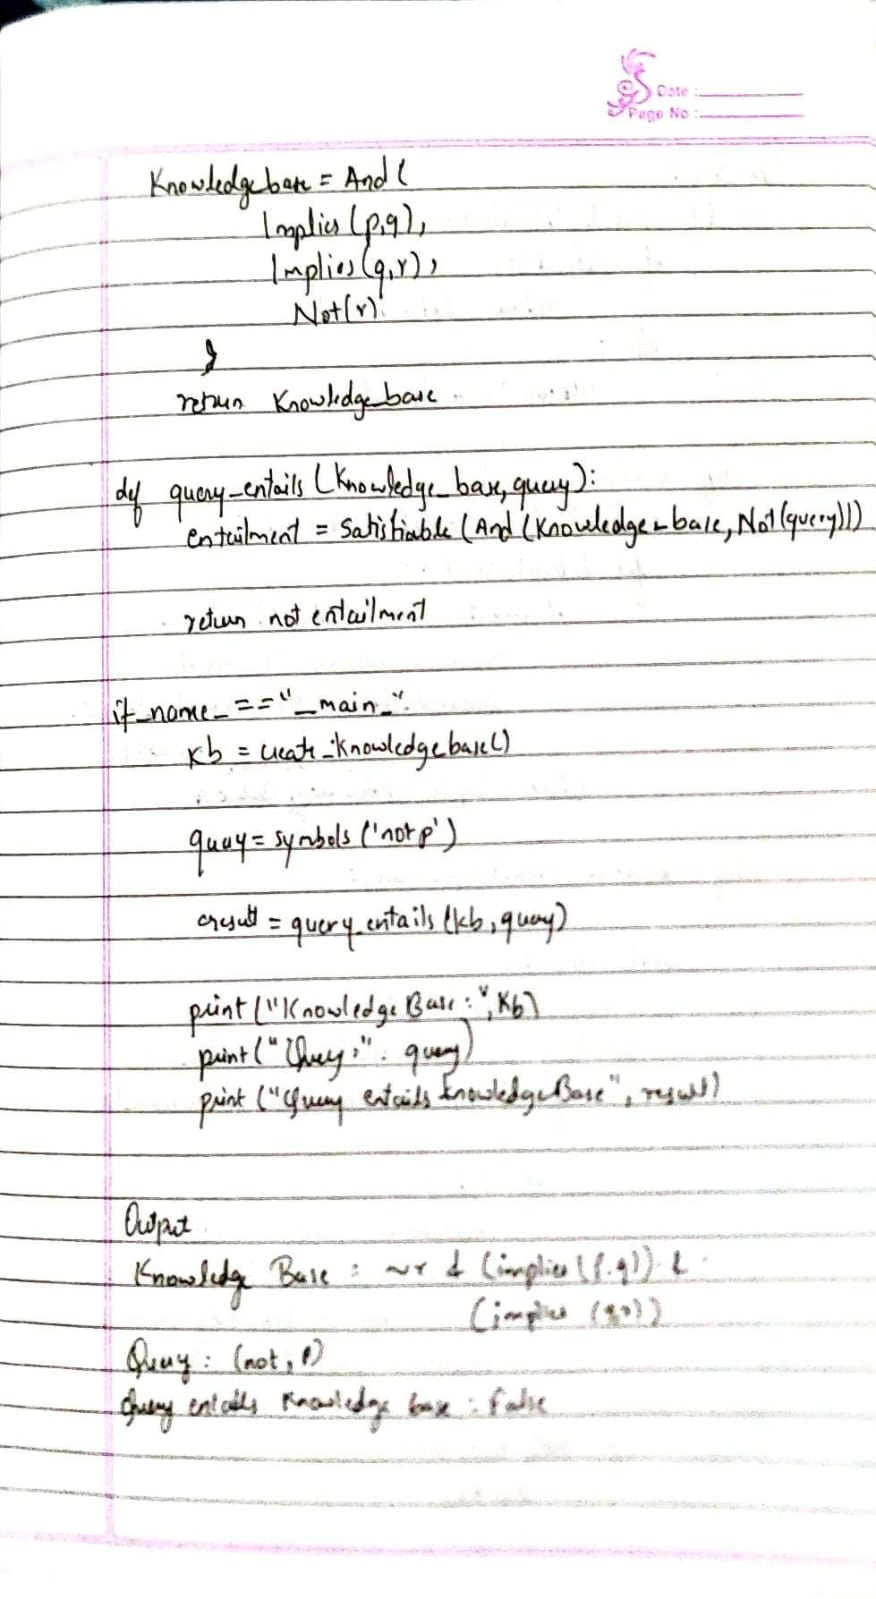 Date :
Page No :
Knowledgebase = And (
Implies (p,q),
Implies (q,r),
Not(r)
)
return Knowledgebase
def query_entails (Knowledge_base, query):
entailment = Satisfiable (And (Knowledge_base, Not(query)))
return not entailment
if _name_ == "_main_":
Kb = create_knowledgebase()
query = symbols ('not p')
result = query_entails (kb, query)
print ("Knowledge Base :", Kb)
print (" Query :", query)
print ("Query entails KnowledgeBase", result)
Output
Knowledge Base : ~r & (implies (p,q)) &
(implies (q,r))
Query : (not, p)
Query entails Knowledge base : False